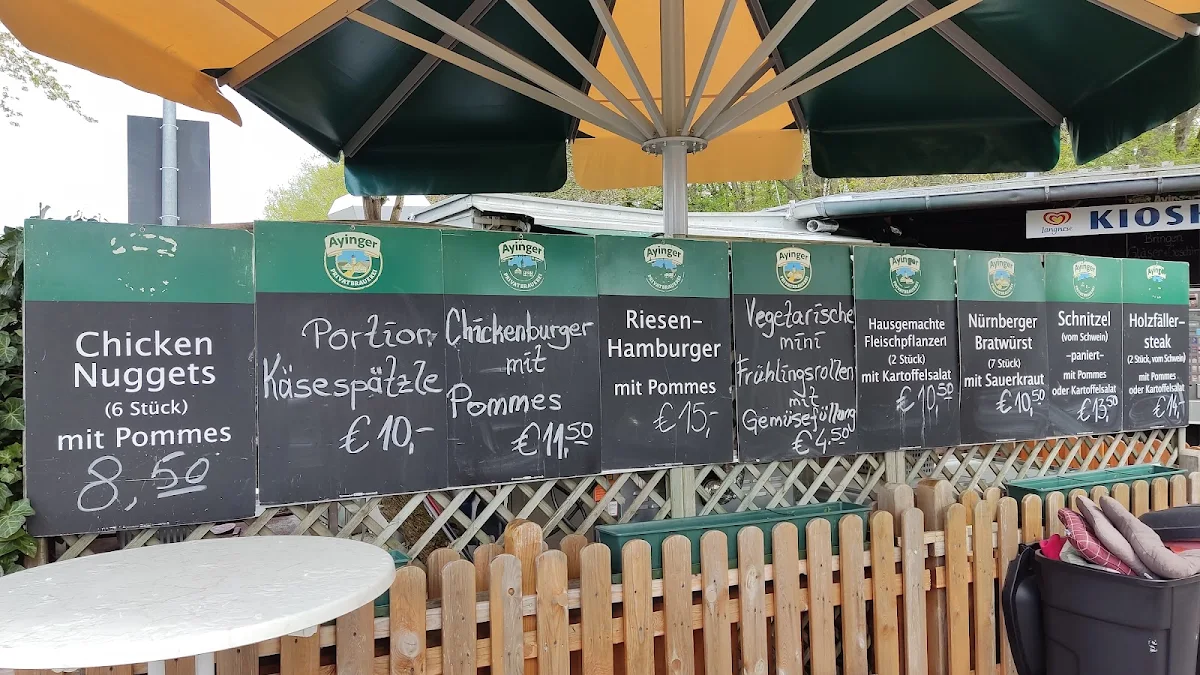 Chicken
Nuggets
(6 Stück)
mit Pommes
8,50
Ayinger
PRIVATBRAUEREI
Portion
Käsespätzle
€ 10,-
Ayinger
PRIVATBRAUEREI
Chickenburger
mit
Pommes
€ 11.50
Ayinger
PRIVATBRAUEREI
Riesen-
Hamburger
mit Pommes
€ 15,-
Ayinger
Vegetarische
mini
Frühlingsrollen
mit
Gemüsefüllung
€ 4,50
Ayinger
Hausgemachte
Fleischpflanzerl
(2 Stück)
mit Kartoffelsalat
€ 10,50
Ayinger
Nürnberger
Bratwürst
mit Sauerkraut
€ 10,50
Ayinger
Schnitzel
(vom Schwein)
-paniert-
mit Pommes
oder Kartoffelsalat
€ 13,50
Ayinger
Holzfäller-
steak
(2 Stück, vom Schwein)
mit Pommes
oder Kartoffelsalat
€ 14,-
Langnese
KIOSK